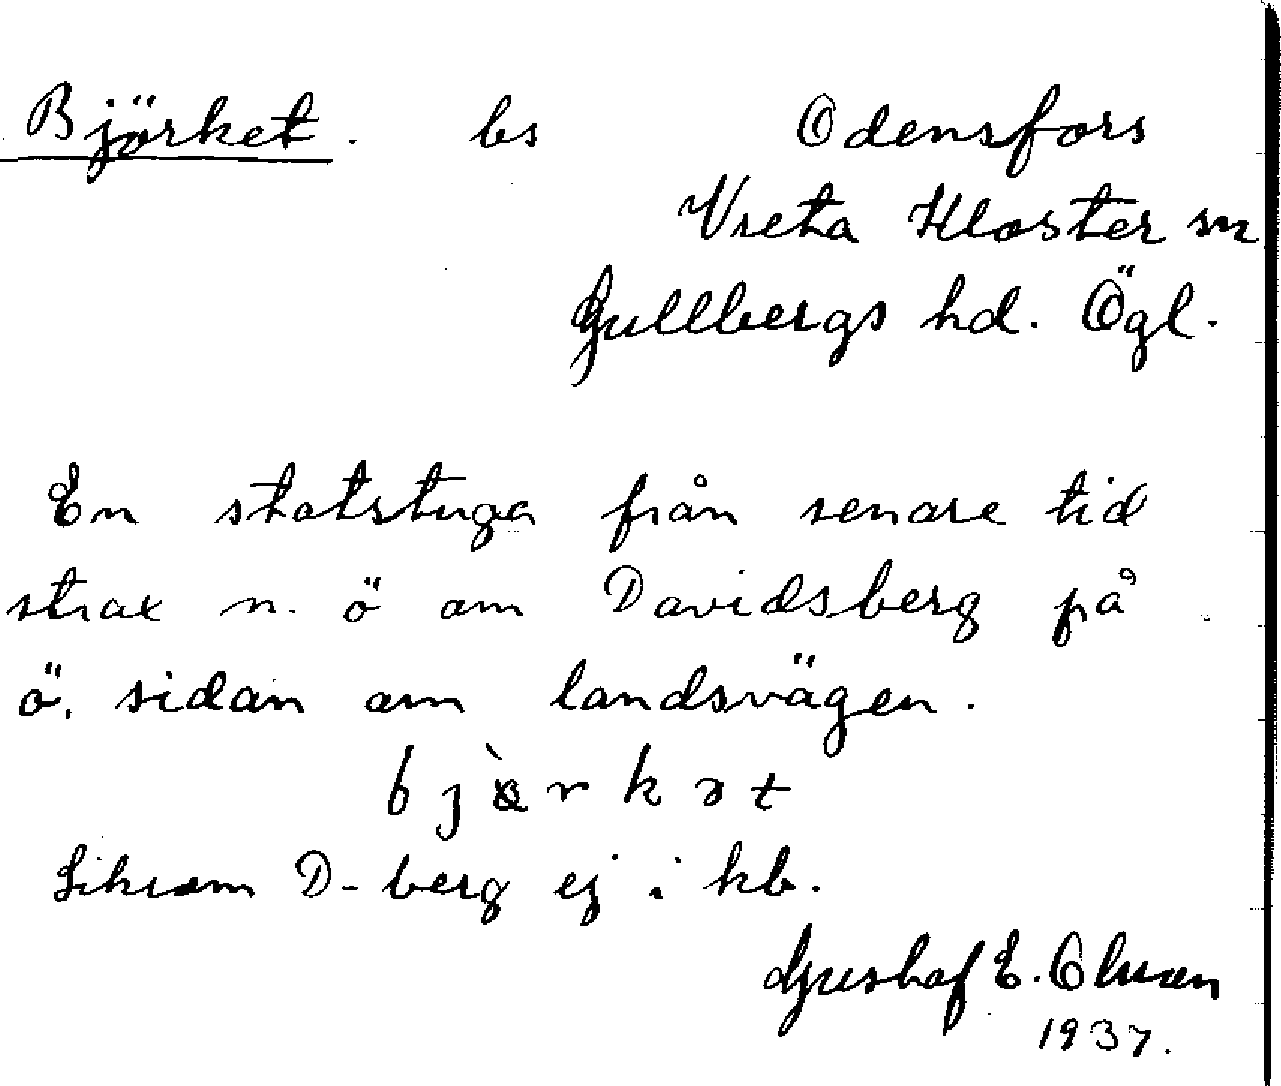 Björket. bs Odensfors
Vreta Kloster sn
Gullbergs hd. Ögl.
En statstuga från senare tid
strax n. ö om Davidsberg på
ö. sidan om landsvägen.
b j r k ə t
Liksom D-berg ej i kb.
Gustaf E. Olsson
1937.